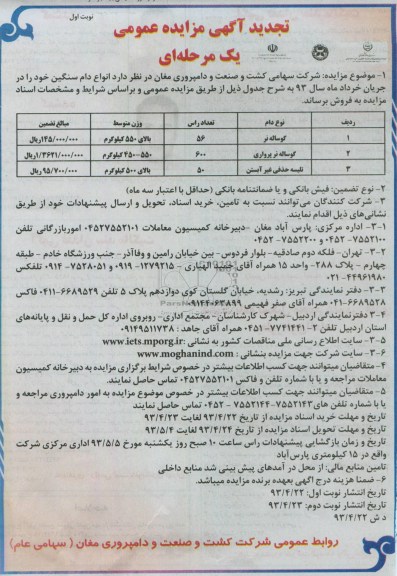 نوبت اول
تجدید آگهی مزایده عمومی
یک مرحله‌ای
۱- موضوع مزایده: شرکت سهامی کشت و صنعت و دامپروری مغان در نظر دارد انواع دام سنگین خود را در
جریان خرداد ماه سال ۹۳ به شرح جدول ذیل از طریق مزایده عمومی و براساس شرایط و مشخصات اسناد
مزایده به فروش برساند.
ردیف نوع دام تعداد راس وزن متوسط مبالغ تضمین
۱ گوساله نر ۵۶ بالای ۵۵۰ کیلوگرم ۱۴۵/۰۰۰/۰۰۰ریال
۲ گوساله نر پرواری ۶۰۰ ۵۵۰-۴۵۰ کیلوگرم ۱/۳۶۴۱/۰۰۰/۰۰۰ریال
۳ تلیسه حذفی غیر آبستن ۵۰ بالای ۵۰۰ کیلوگرم ۹۵/۷۰۰/۰۰۰ ریال
۲- نوع تضمین: فیش بانکی و یا ضمانتنامه بانکی (حداقل با اعتبار سه ماه)
۳- شرکت کنندگان می‌توانند نسبت به تامین، خرید اسناد، تحویل و ارسال پیشنهادات خود از طریق
نشانی‌های ذیل اقدام نمایند.
۳-۱- اداره مرکزی: پارس آباد مغان -دبیرخانه کمیسیون معاملات ۰۴۵۲۷۵۵۲۱۰۱ اموربازرگانی تلفن
۷۵۵۲۱۰۰-۰۴۵۲ و ۷۵۵۲۲۰۰-۰۴۵۲
۳-۲- تهران- فلکه دوم صادقیه- بلوار فردوس- بین خیابان رامین و وفاآذر- جنب ورزشگاه خادم - طبقه
چهارم - پلاک ۲۸۸- واحد ۱۵ همراه آقای حبیب الهیاری - ۱۲۷۹۲۱۵-۰۹۱۹ و ۷۵۲۸۰۵۱-۰۹۱۴ تلفکس
۴۴۹۶۱۹۸۰-۰۲۱
۳-۳- دفتر نمایندگی تبریز: رشدیه، خیابان گلستان کوی دوازدهم پلاک ۵ تلفن ۶۶۸۹۵۲۹-۰۴۱۱ فاکس
۶۶۸۹۵۲۸-۰۴۱ همراه آقای صفر فهیمی ۰۹۱۴۴۰۶۳۸۹۹
۳-۴ دفترنمایندگی اردبیل - شهرک کارشناسان- مجتمع اداری - روبروی اداره کل حمل و نقل و پایانه‌های
استان اردبیل تلفن ۲-۷۷۴۱۴۴۱-۰۴۵۱ همراه آقای جاهد : ۰۹۱۴۹۵۱۱۷۳۸
۳-۵- سایت اطلاع رسانی ملی مناقصات کشور به نشانی: www.iets.mporg.ir
۳-۶- سایت شرکت جهت مزایده بنشانی : www.moghanind.com
۴- متقاضیان میتوانند جهت کسب اطلاعات بیشتر در خصوص شرایط برگزاری مزایده به دبیرخانه کمیسیون
معاملات مراجعه و یا با شماره تلفن و فاکس ۰۴۵۲۷۵۵۲۱۰۱ تماس حاصل نمایند.
۵- متقاضیان میتوانند جهت کسب اطلاعات بیشتر در خصوص موضوع مزایده به امور دامپروری مراجعه و
یا با شماره تلفن های ۷۵۵۲۱۴۳-۷۵۵۲۱۴۴ -۰۴۵۲ تماس حاصل نمایند
تاریخ و مهلت خرید اسناد مزایده از تاریخ ۹۳/۴/۲۲ لغایت ۹۳/۴/۲۳
تاریخ و مهلت تحویل اسناد مزایده از تاریخ ۹۳/۴/۲۴ لغایت ۹۳/۵/۴
تاریخ و زمان بازگشایی پیشنهادات راس ساعت ۱۰ صبح روز یکشنبه مورخ ۹۳/۵/۵ اداری مرکزی شرکت
واقع در ۱۵ کیلومتری پارس‌آباد
تامین منابع مالی: از محل در آمدهای پیش بینی شد منابع داخلی
۶- ضمنا هزینه درج آگهی بعهده برنده مزایده میباشد.
تاریخ انتشار نوبت اول: ۹۳/۴/۲۲
تاریخ انتشار نوبت دوم: ۹۳/۴/۲۳
د ش ۹۳/۴/۲۲
روابط عمومی شرکت کشت و صنعت و دامپروری مغان ( سهامی عام)